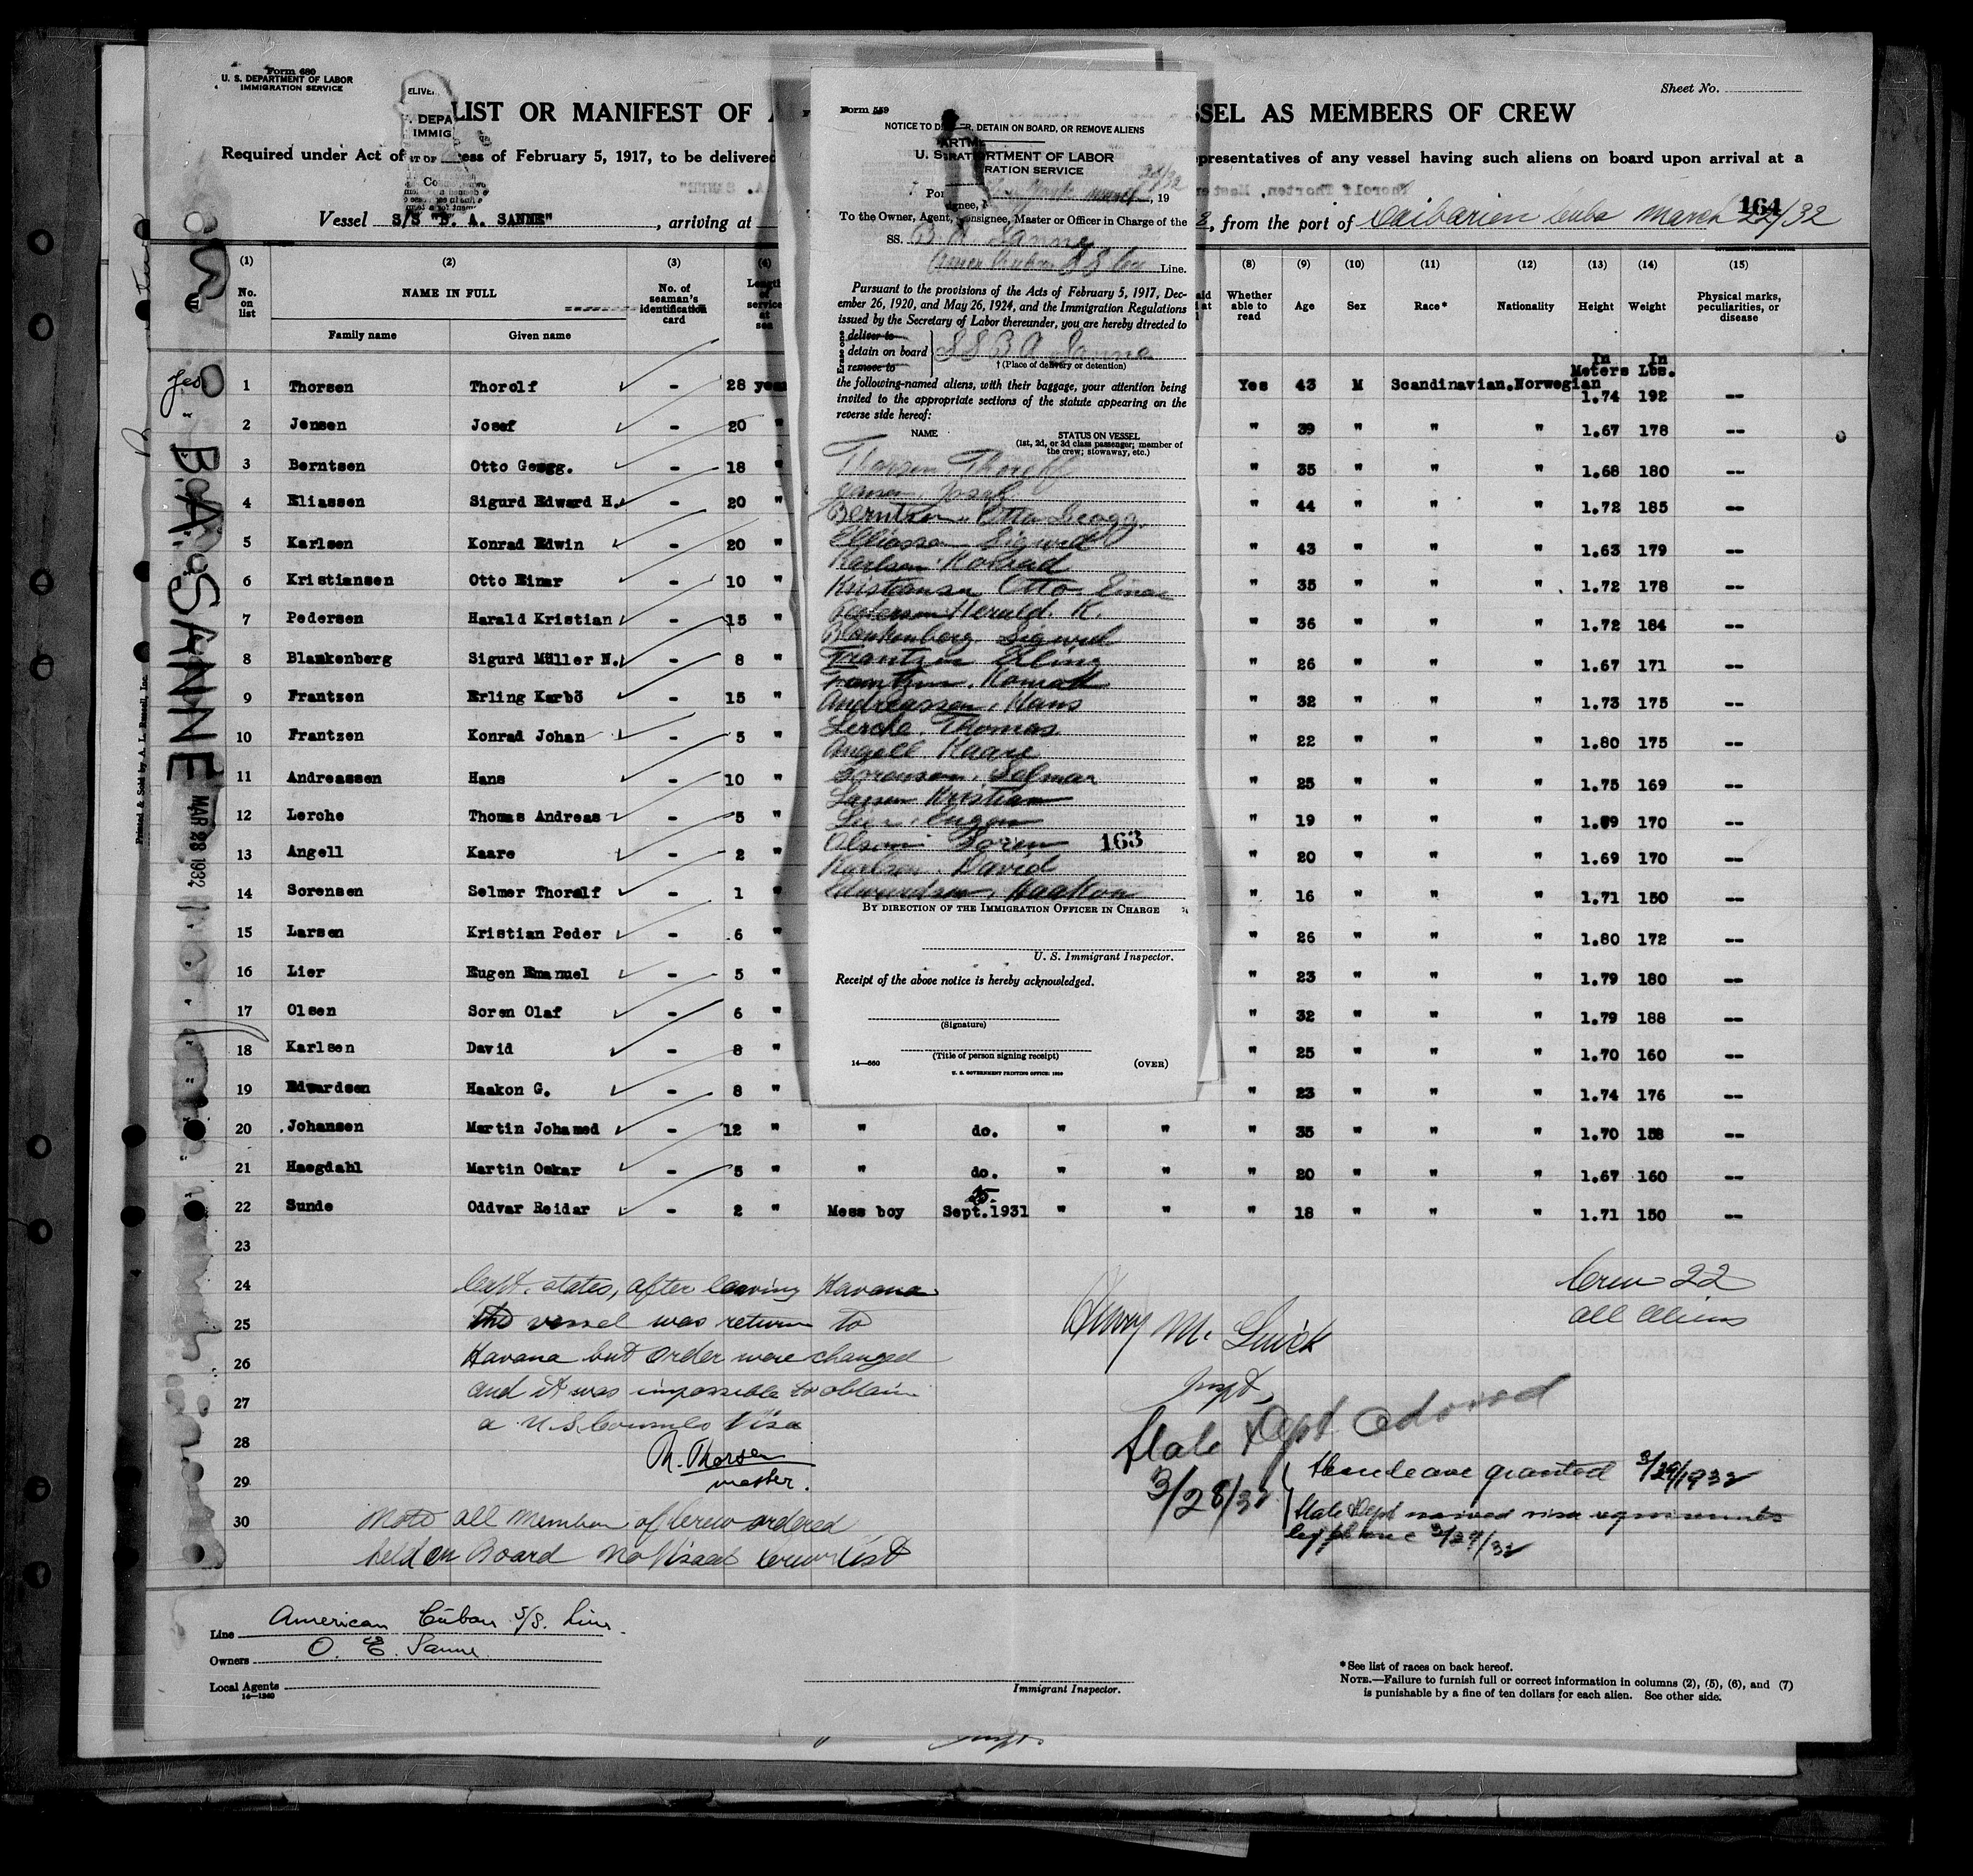 Form 680
U. S. DEPARTMENT OF LABOR
IMMIGRATION SERVICE
Sheet No.
LIST OR MANIFEST OF SSEL AS MEMBERS OF CREW
Required under Act of ess of February 5, 1917, to be delivered presentatives of any vessel having such aliens on board upon arrival at a
164
Vessel S/S "B. A. SANNE", arriving at , from the port of Caibarien Cuba March 22/32
(1) (2) (3) (6) (8) (9) (10) (11) (12) (13) (14) (15)
No. on list NAME IN FULL No. of seaman's identification card Length of service at sea Whether able to read Age Sex Race* Nationality Height Weight Physical marks, peculiarities, or disease
Family name Given name
In Meters In Lbs.
1 Thorsen Thorolf - 28 years Yes 43 M Scandinavian. Norwegian 1.74 192 --
2 Jensen Josef - 20 " " 39 " " " 1.67 178 --
3 Berntsen Otto Geogg. - 18 " " 35 " " " 1.68 180 --
4 Eliassen Sigurd Edward H. - 20 " " 44 " " " 1.72 185 --
5 Karlsen Konrad Edwin - 20 " " 43 " " " 1.63 179 --
6 Kristiansen Otto Einar - 10 " " 35 " " " 1.72 178 --
7 Pedersen Harald Kristian - 15 " " 36 " " " 1.72 184 --
8 Blankenberg Sigurd Müller N. - 8 " " 26 " " " 1.67 171 --
9 Frantzen Erling Karbö - 15 " 32 " " " 1.73 175 --
10 Frantzen Konrad Johan - 5 " " 22 " " " 1.80 175 --
11 Andreassen Hans - 10 " " 25 " " " 1.75 169 --
12 Lerche Thomas Andreas - 5 " " 19 " " " 170 --
13 Angell Kaare - 2 " " 20 " " " 1.69 170 --
14 Sorensen Selmer Thoralf - 1 " " 16 " " " 1.71 150 --
15 Larsen Kristian Peder - 6 " " 26 " " " 1.80 172 --
16 Lier Eugen Emanuel - 5 " " 23 " " " 1.79 180 --
17 Olsen Soren Olaf - 6 " " 32 " " " 1.79 188 --
18 Karlsen David - 8 " " 25 " " " 1.70 160 --
19 Edwardsen Haakon G. - 8 " " 23 " " " 1.74 176 --
20 Johansen Martin Johamed - 12 " " do. " " " 35 " " " 1.70 158 --
21 Haegdahl Martin Oskar - 5 " " do. " " " 20 " " " 1.67 160 --
22 Sunde Oddvar Reidar - 2 " Mess boy 15. Sept.1931 " " " 18 " " " 1.71 150 --
23
24
25
26
27
28
29
30
Capt. states, after leaving Havana
the vessel was return to
Havana but order were changed
and it was impossible to obtain
a U.S. Consuls Visa
Th. Thorsen
master.
Note all member of Crew ordered
held on Board no visaed crew list
Henry M. Quick
Inspt,
Crew 22
all aliens
State Dept advised
3/28/32
Shore leave granted 3/29/1932
State Dept waived visa requirements
by phone 3/29/32
Line American Cuban S/S. Line.
Owners O. E. Sanne.
Local Agents
14-1240
Immigrant Inspector.
*See list of races on back hereof.
NOTE.—Failure to furnish full or correct information in columns (2), (5), (6), and (7)
is punishable by a fine of ten dollars for each alien. See other side.
Form 559
NOTICE TO DELIVER, DETAIN ON BOARD, OR REMOVE ALIENS
U. S. DEPARTMENT OF LABOR
IMMIGRATION SERVICE
28/32
, 19
To the Owner, Agent, Consignee, Master or Officer in Charge of the
SS. B A Sanne
Amer Cuban S S Co Line.
Pursuant to the provisions of the Acts of February 5, 1917, Dec-
ember 26, 1920, and May 26, 1924, and the Immigration Regulations
issued by the Secretary of Labor thereunder, you are hereby directed to
Erase one
deliver to
detain on board SS B A Sanne
remove to
†(Place of delivery or detention)
the following-named aliens, with their baggage, your attention being
invited to the appropriate sections of the statute appearing on the
reverse side hereof:
NAME STATUS ON VESSEL
(1st, 2d, or 3d class passenger; member of
the crew; stowaway, etc.)
Thorsen, Thorolf
Jensen, Josef
Berntsen, Otto Geogg.
Eliassen Sigurd
Karlsen Konrad
Kristiansen Otto Einar
Pedersen Herald. K.
Blankenberg Sigurd
Frantzen Erling
Frantzen, Konrad
Andreassen, Hans
Lerche, Thomas
Angell Kaare
Sorensen, Selmar
Larsen Kristian
Lier, Eugen
Olsen Soren
163
Karlsen, David
Edwardsen, Haakon
BY DIRECTION OF THE IMMIGRATION OFFICER IN CHARGE
U. S. Immigrant Inspector.
Receipt of the above notice is hereby acknowledged.
(Signature)
(Title of person signing receipt)
14—660
(OVER)
U. S. GOVERNMENT PRINTING OFFICE: 1930
yes
B.A. SANNE
MAR 28 1932
Printed & Sold by A. L. Russell, Inc.